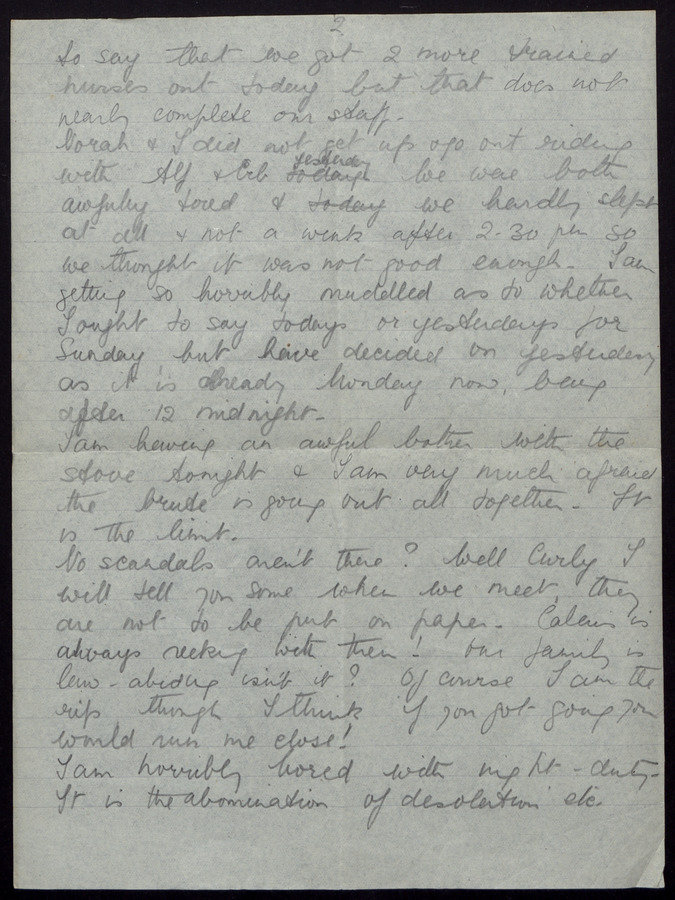 2
to say that we got 2 more trained
nurses out today but that does not
nearly complete our staff.
Norah & I did not get up & go out riding
with Alf & Erb yesterday today We were both
awfully tired & today we hardly slept
at all & not a wink after 2-30 pm so
we thought it was not good enough. I am
getting so horribly muddled as to whether
I ought to say todays or yesterdays for
Sunday but have decided on yesterday
as it is already Monday now, being
after 12 midnight.
I am having an awful bother with the
stove tonight & I am very much afraid
the brute is going out all together. It
is the limit.
No scandals aren't there? Well Curly I
will tell you some when we meet, they
are not to be put on paper. Calais is
always reeking with them! Our family is
law-abiding isn't it? Of course I am the
rip though I think if you got going you
would run me close!
I am horribly bored with night-duty.
It is the abomination of desolation etc.